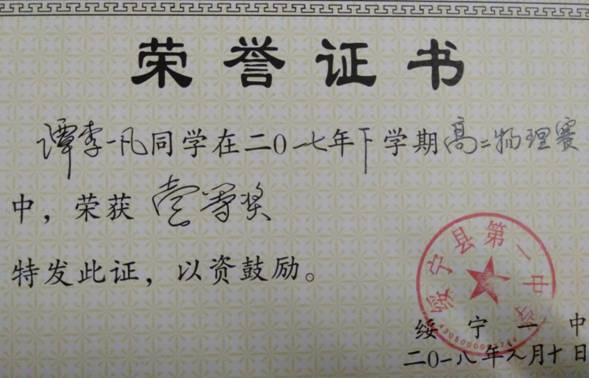 荣誉证书
谭李一凡同学在二〇一七年下学期高二物理赛
中，荣获 壹等奖
特发此证，以资鼓励。
绥宁县第一中学
绥宁一中
二〇一八年 月十日